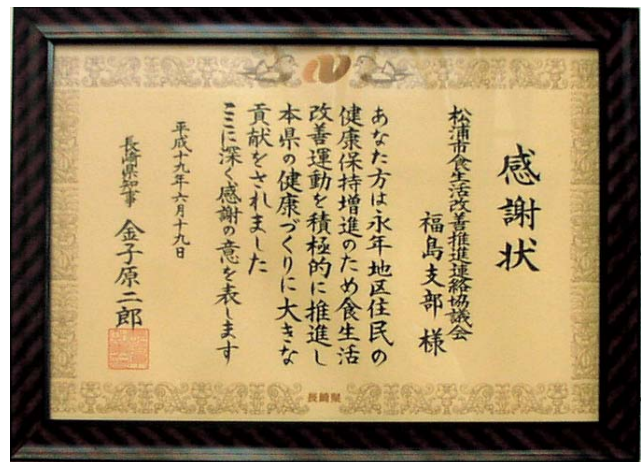 感謝状
松浦市食生活改善推進連絡協議会
福島支部 様
あなた方は永年地区住民の
健康保持増進のため食生活
改善運動を積極的に推進し
本県の健康づくりに大きな
貢献をされました
ここに深く感謝の意を表します
平成十九年六月十九日
長崎県知事 金子原二郎
長崎県